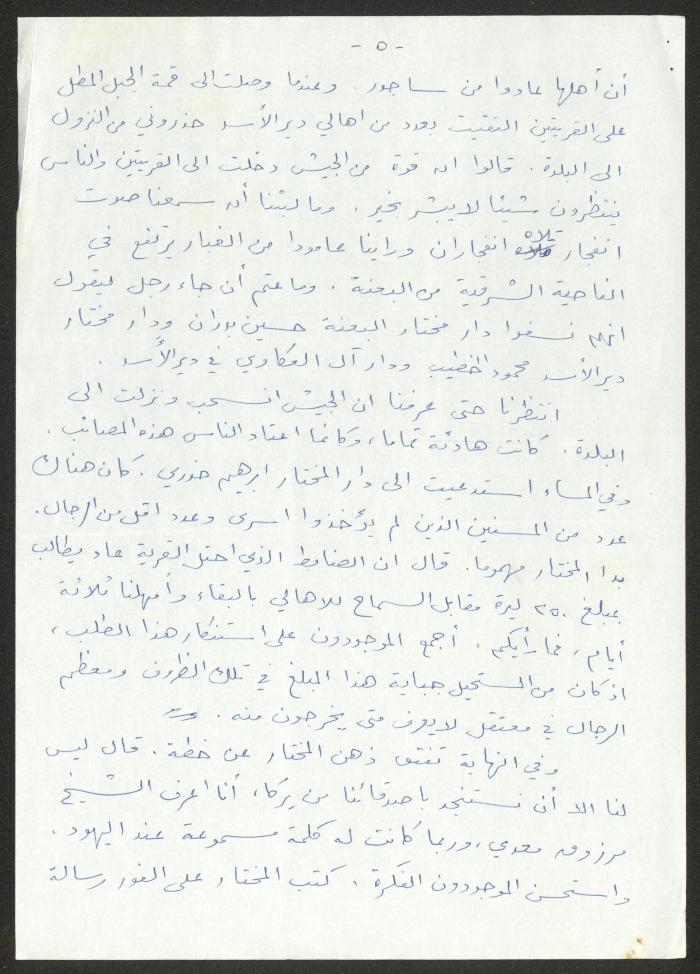 - ٥ -
أن أهلها عادوا من ساجور. وعندما وصلت الى قمة الجبل المطل
على القريتين التقيت بعدد من اهالي دير الأسد حذروني من النزول
الى البلدة. قالوا ان قوة من الجيش دخلت الى القريتين والناس
ينتظرون شيئا لا يبشر بخير. وما لبثنا أن سمعنا صوت
انفجار تلاه انفجاران وراينا عامودا من الغبار يرتفع في
الناحية الشرقية من البعنة. وما عتم أن جاء رجل ليقول
انهم نسفوا دار مختار البعنة حسين بدران ودار مختار
دير الأسد محمود الخطيب ودار آل العكاوي في دير الأسد.
انتظرنا حتى عرفنا ان الجيش انسحب ونزلت الى
البلدة. كانت هادئة تماما، وكانما اعتاد الناس هذه المصائب.
وفي المساء استدعيت الى دار المختار ابرهيم خوري. كان هناك
عدد من المسنين الذين لم يؤخذوا اسرى وعدد اقل من الرجال.
بدا المختار مهموما. قال ان الضابط الذي احتل القرية عاد يطالب
بمبلغ ٢٥٠ ليرة مقابل السماح للاهالي بالبقاء وأمهلنا ثلاثة
أيام، فما رأيكم. أجمع الموجودون على استنكار هذا الطلب،
اذ كان من المستحيل جباية هذا المبلغ في تلك الظروف ومعظم
الرجال في معتقل لا يعرف متى يخرجون منه.
وفي النهاية تفتق ذهن المختار عن خطة. قال ليس
لنا الا أن نستنجد باصدقائنا من يركا، أنا اعرف الشيخ
مرزوق معدي، وربما كانت له كلمة مسموعة عند اليهود.
واستحسن الموجودون الفكرة. كتب المختار على الفور رسالة